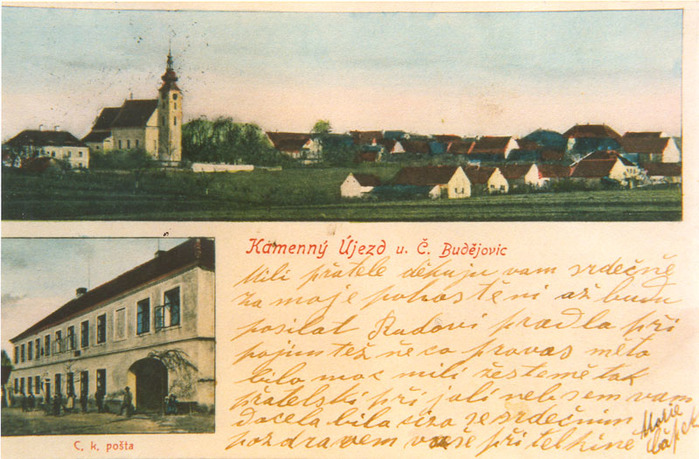 Kamenný Újezd u. Č. Budějovic
Mili přatele děkuju vam srdečně
za moje pohostěni až budu
posilat Radovi pradla při
pojim tež něco pro vas měto
bilo moc mili žestemě tak
přatelski při jali nebsem vam
docela bila ze srdečnim
pozdravem vaše přitelkině
Marie
C. k. pošta